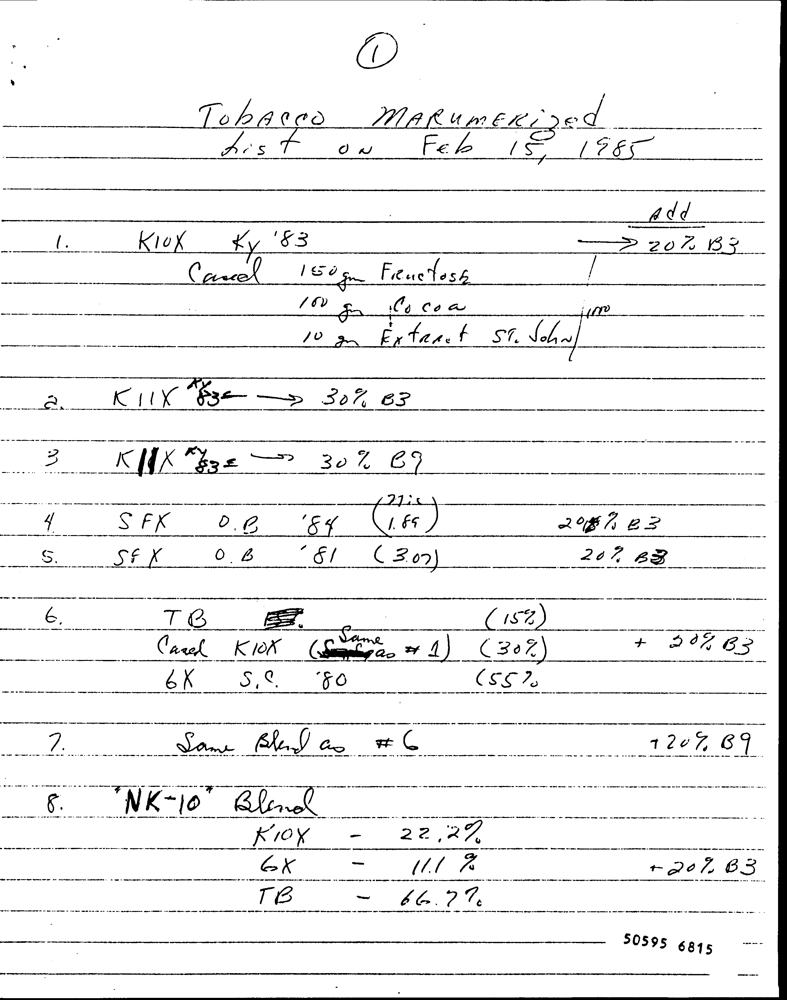 1
Tobacco Marumerized
List on Feb 15, 1985
Add
1. K10X Ky '83 → 20% B3
Cased 150 gm Fructose
100 gm Cocoa
10 gm Extract St. John
2. K11X Ky 83 → 30% B3
3 K11X Ky 83 → 30% B9
4. SFX O.B '84 (1.89) 20% B3
5. SFX O.B '81 (3.07) 20% B3
6. TB (15%)
Cased K10X (Same as #1) (30%) + 20% B3
6X S.C. '80 (55%
7. Same Blend as #6 +20% B9
8. "NK-10" Blend
K10X - 22.2%
6X - 11.1 % +20% B3
TB - 66.7%
50595 6815